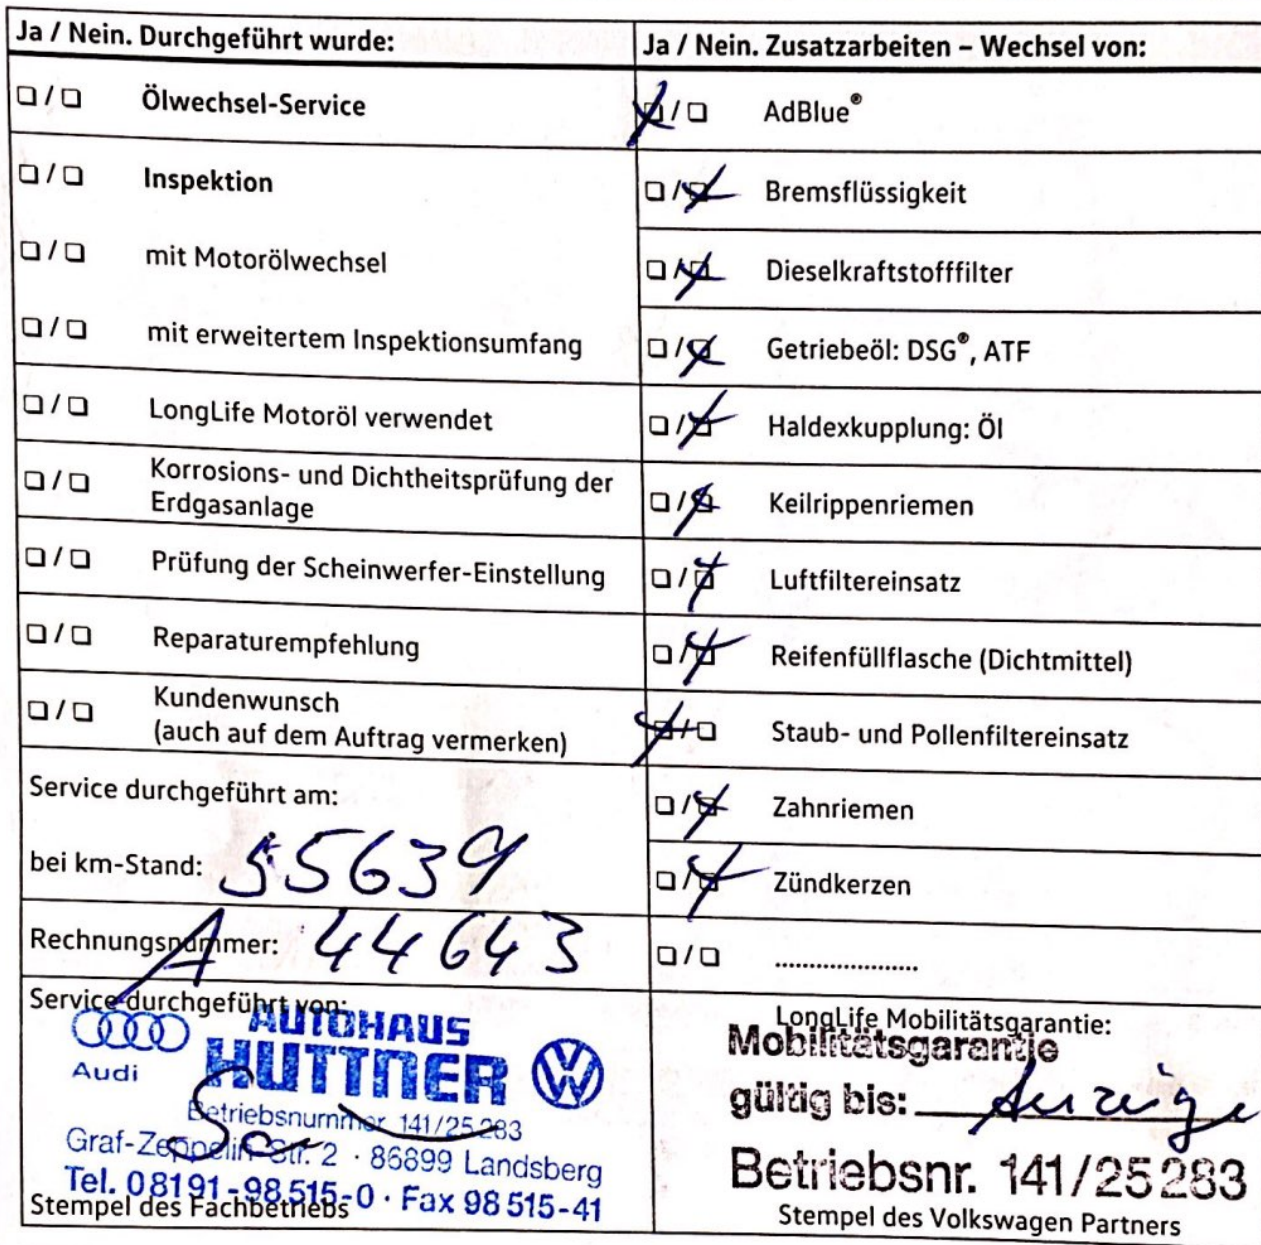 Ja / Nein. Durchgeführt wurde:
Ölwechsel-Service
Inspektion
mit Motorölwechsel
mit erweitertem Inspektionsumfang
LongLife Motoröl verwendet
Korrosions- und Dichtheitsprüfung der
Erdgasanlage
Prüfung der Scheinwerfer-Einstellung
Reparaturempfehlung
Kundenwunsch
(auch auf dem Auftrag vermerken)
Service durchgeführt am:
bei km-Stand: 55639
Rechnungsnummer: A 44643
Service durchgeführt von:
AUTOHAUS
HUTTNER
Audi
Betriebsnummer 141/25283
Graf-Zeppelin-Str. 2 · 86899 Landsberg
Tel. 08191-98515-0 · Fax 98515-41
Stempel des Fachbetriebs
Ja / Nein. Zusatzarbeiten – Wechsel von:
AdBlue®
Bremsflüssigkeit
Dieselkraftstofffilter
Getriebeöl: DSG®, ATF
Haldexkupplung: Öl
Keilrippenriemen
Luftfiltereinsatz
Reifenfüllflasche (Dichtmittel)
Staub- und Pollenfiltereinsatz
Zahnriemen
Zündkerzen
......................
LongLife Mobilitätsgarantie:
Mobilitätsgarantie
gültig bis: Anzeige
Betriebsnr. 141/25283
Stempel des Volkswagen Partners